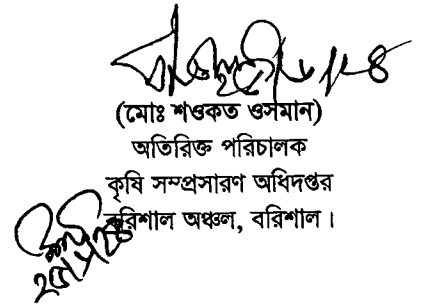 (মোঃ শওকত ওসমান)
অতিরিক্ত পরিচালক
কৃষি সম্প্রসারণ অধিদপ্তর
বরিশাল অঞ্চল, বরিশাল।